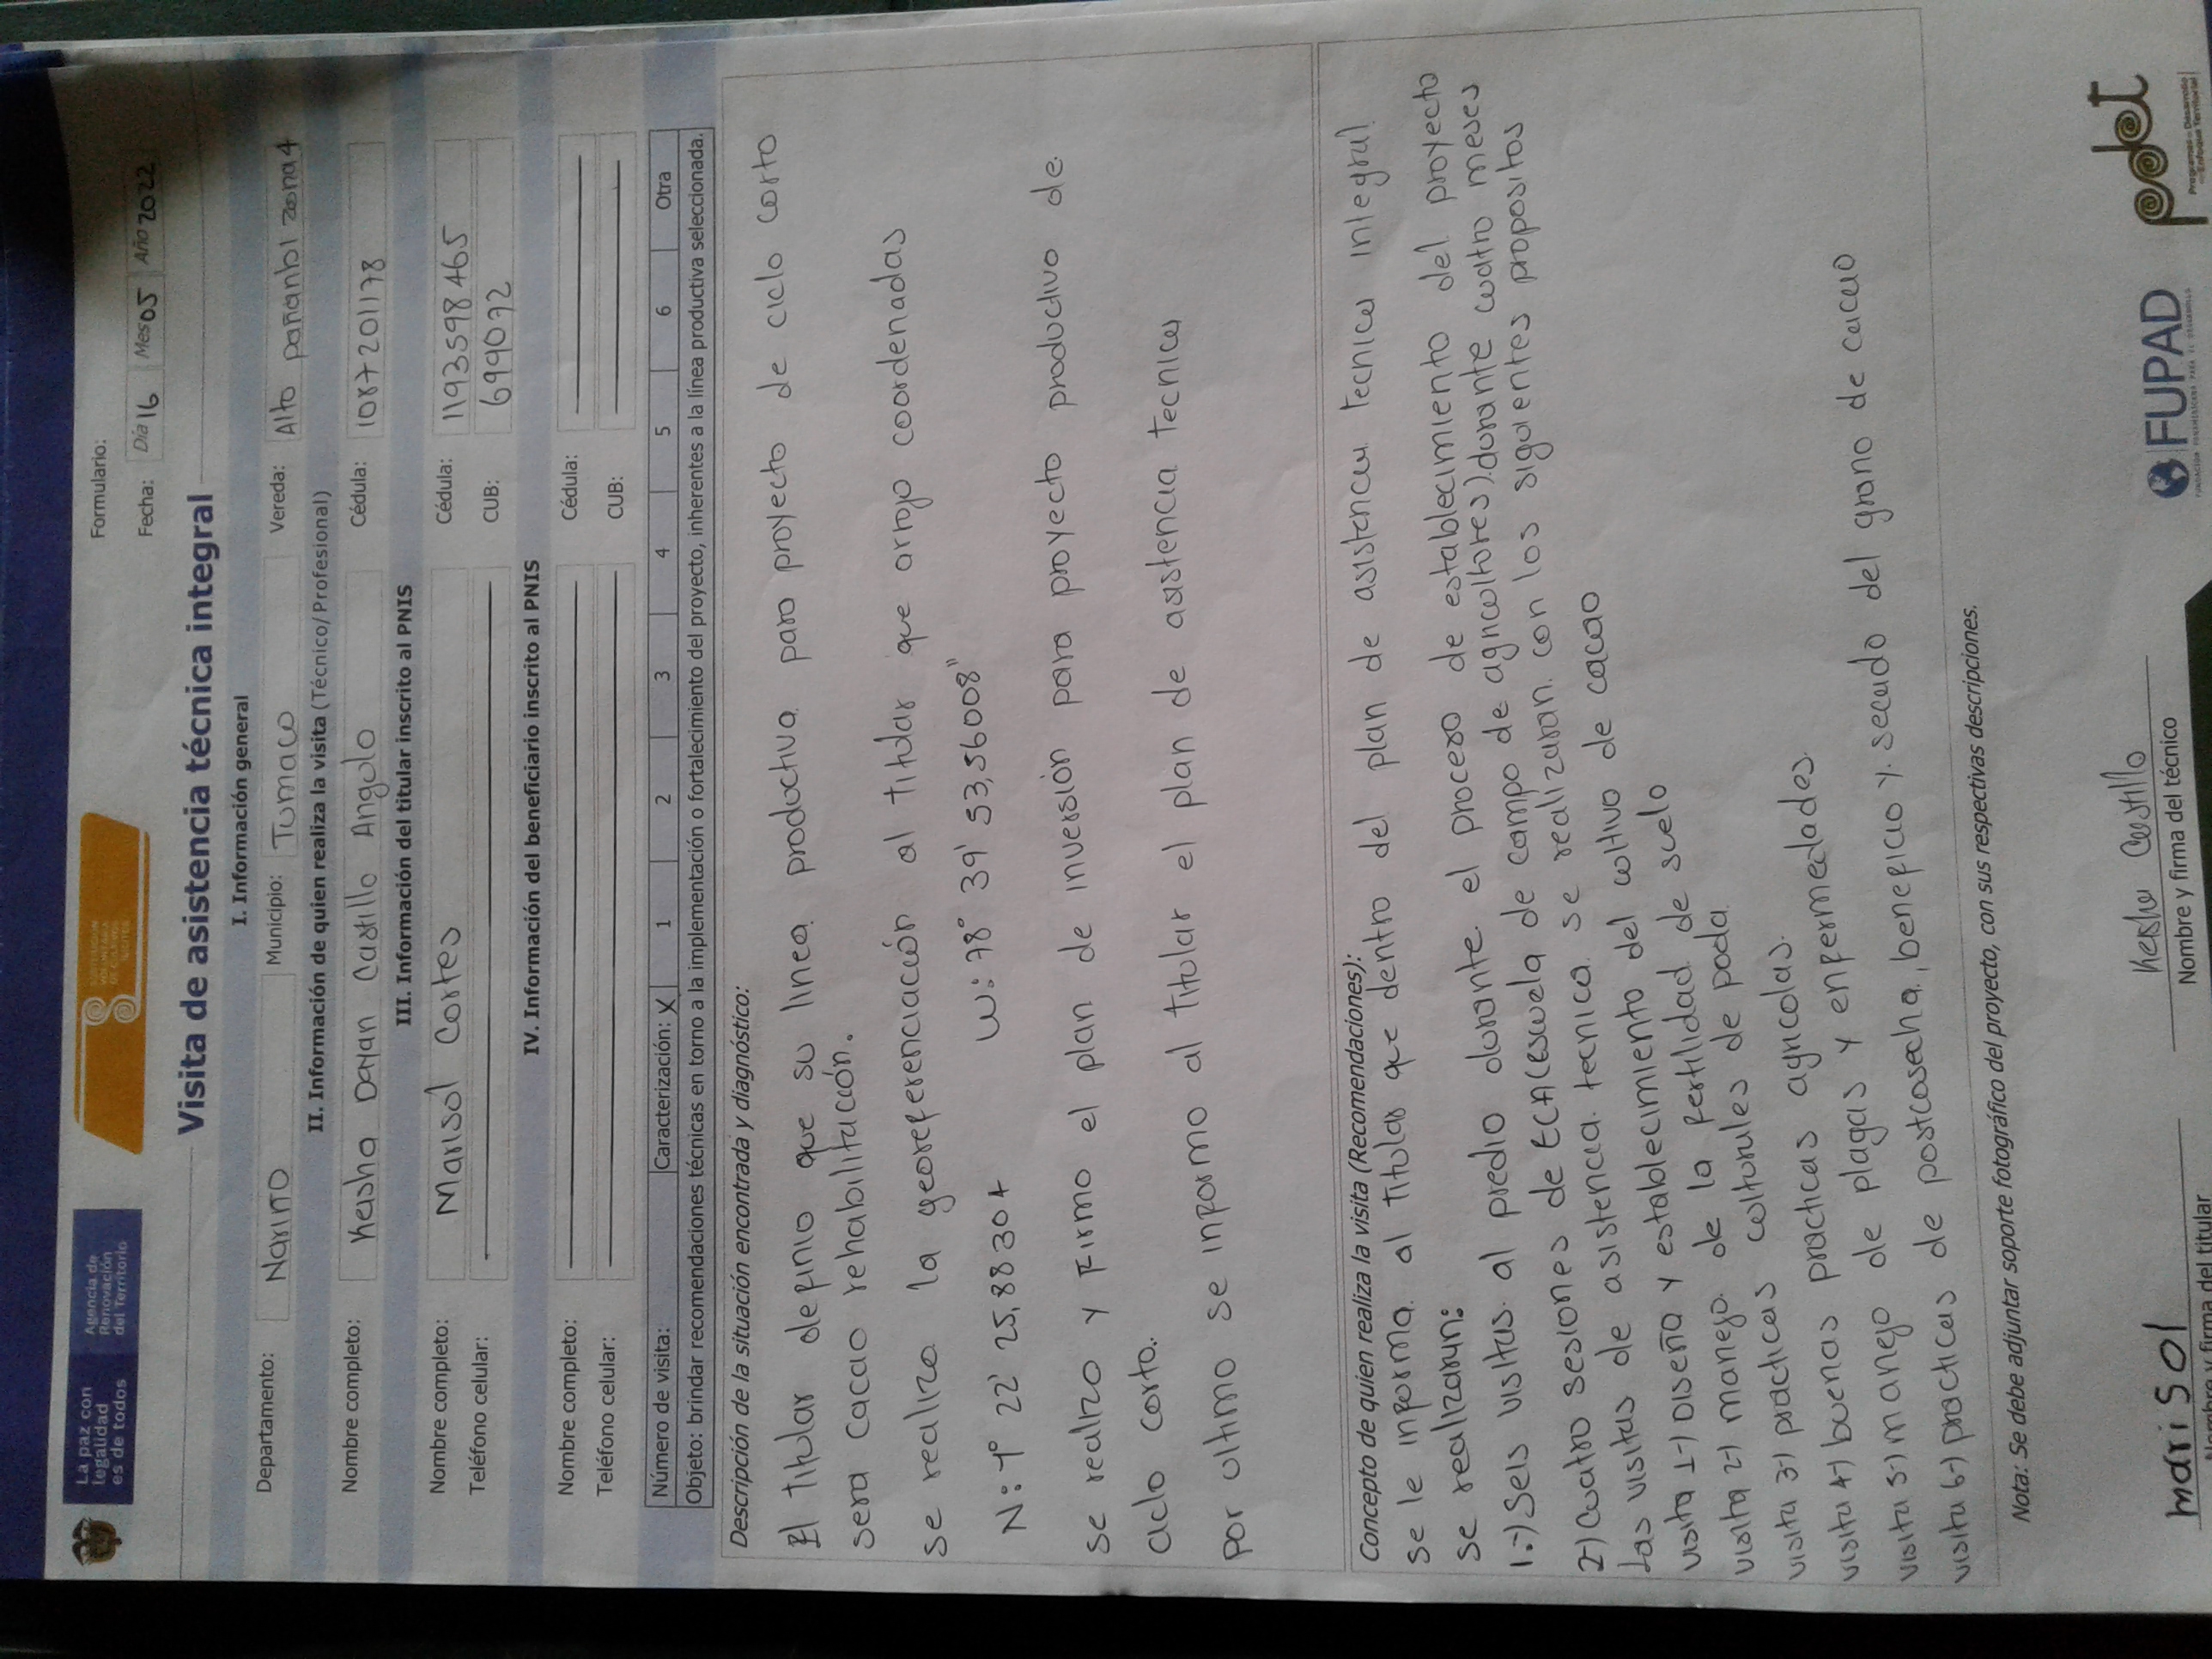 La paz con
legalidad
es de todos
Agencia de
Renovación
del Territorio
SUSTITUCIÓN
VOLUNTARIA
DE CULTIVOS
ILÍCITOS
Formulario:
Fecha: Día 16 Mes 05 Año 2022
Visita de asistencia técnica integral
I. Información general
Departamento: Nariño Municipio: Tumaco Vereda: Alto pañambí zona 4
II. Información de quien realiza la visita (Técnico/Profesional)
Nombre completo: Keisha Dayan Castillo Angulo Cédula: 1087201178
III. Información del titular inscrito al PNIS
Nombre completo: Marisol Cortes Cédula: 1193598465
Teléfono celular: CUB: 699072
IV. Información del beneficiario inscrito al PNIS
Nombre completo: Cédula:
Teléfono celular: CUB:
Número de visita: Caracterización: X 1 2 3 4 5 6 Otra
Objeto: brindar recomendaciones técnicas en torno a la implementación o fortalecimiento del proyecto, inherentes a la línea productiva seleccionada.
Descripción de la situación encontrada y diagnóstico:
El titular definio que su linea productiva para proyecto de ciclo corto
sera cacao rehabilitación.
se realizo la georeferenciación al titular que arrojo coordenadas
N: 1° 22' 25,88304 W: 78° 39' 53,56008"
se realizo y Firmo el plan de inversión para proyecto productivo de
ciclo corto.
por ultimo se informo al titular el plan de asistencia tecnica
Concepto de quien realiza la visita (Recomendaciones):
se le informa al titular que dentro del plan de asistencia tecnica integral
se realizaran:
1.-) Seis visitas al predio durante el proceso de establecimiento del proyecto
2-) cuatro sesiones de ECA (escuela de campo de agricultores) durante cuatro meses
Las visitas de asistencia tecnica se realizaran con los siguientes propositos
visita 1-) Diseña y establecimiento del cultivo de cacao
visita 2-) manejo de la fertilidad de suelo
visita 3-) practicas culturales de poda
visita 4-) buenas practicas agricolas.
visita 5-) manejo de plagas y enfermedades
visita 6-) practicas de postcosecha, beneficio y secado del grano de cacao
Nota: Se debe adjuntar soporte fotográfico del proyecto, con sus respectivas descripciones.
Marisol
Nombre y firma del titular
Keisha Castillo
Nombre y firma del técnico
FUPAD
pdet
Programas de Desarrollo
con Enfoque Territorial